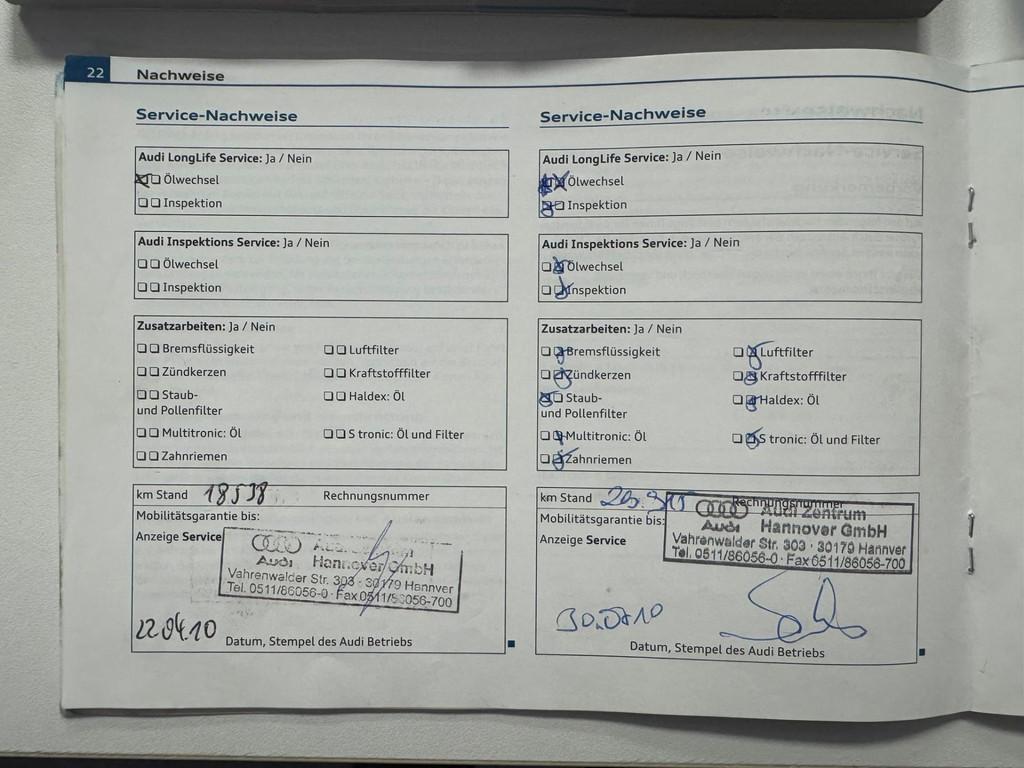 22 Nachweise
Service-Nachweise
Audi LongLife Service: Ja / Nein
Ölwechsel
Inspektion
Audi Inspektions Service: Ja / Nein
Ölwechsel
Inspektion
Zusatzarbeiten: Ja / Nein
Bremsflüssigkeit
Luftfilter
Zündkerzen
Kraftstofffilter
Staub-
und Pollenfilter
Haldex: Öl
Multitronic: Öl
S tronic: Öl und Filter
Zahnriemen
km Stand 18538 Rechnungsnummer
Mobilitätsgarantie bis:
Anzeige Service
Audi Hannover GmbH
Vahrenwalder Str. 303 · 30179 Hannver
Tel. 0511/86056-0 · Fax 0511/86056-700
22.04.10
Datum, Stempel des Audi Betriebs
Service-Nachweise
Audi LongLife Service: Ja / Nein
Ölwechsel
Inspektion
Audi Inspektions Service: Ja / Nein
Ölwechsel
Inspektion
Zusatzarbeiten: Ja / Nein
Bremsflüssigkeit
Luftfilter
Zündkerzen
Kraftstofffilter
Staub-
und Pollenfilter
Haldex: Öl
Multitronic: Öl
S tronic: Öl und Filter
Zahnriemen
km Stand Rechnungsnummer
Mobilitätsgarantie bis:
Anzeige Service
Audi Zentrum
Audi Hannover GmbH
Vahrenwalder Str. 303 · 30179 Hannver
Tel. 0511/86056-0 · Fax 0511/86056-700
Datum, Stempel des Audi Betriebs